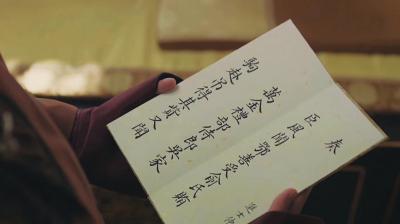 奏
臣風聞鄂善受俞氏賄
萬金禮部侍郎吳家
駒赴吊得其貲又聞